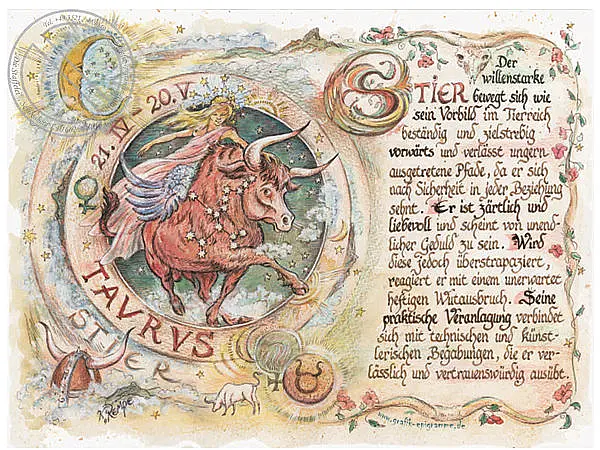 21.IV - 20.V.
TAVRVS
STIER
K. Rempe
Der
willenstarke
STIER bewegt sich wie
sein Vorbild im Tierreich
beständig und zielstrebig
vorwärts und verlässt ungern
ausgetretene Pfade, da er sich
nach Sicherheit in jeder Beziehung
sehnt. Er ist zärtlich und
liebevoll und scheint von unend-
licher Geduld zu sein. Wird
diese jedoch überstrapaziert,
reagiert er mit einem unerwartet
heftigen Wutausbruch. Seine
praktische Veranlagung verbindet
sich mit technischen und künst-
lerischen Begabungen, die er ver-
lässlich und vertrauenswürdig ausübt.
www.grafik-epigramme.de